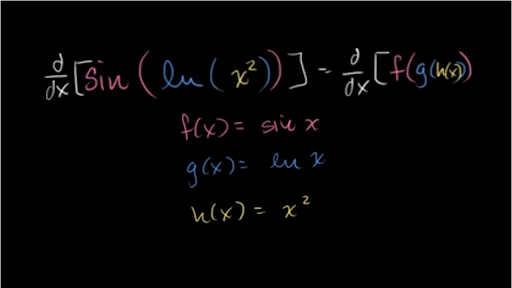 d/dx [sin (ln (x²))] = d/dx [f(g(h(x))
f(x) = sin x
g(x) = ln x
h(x) = x²